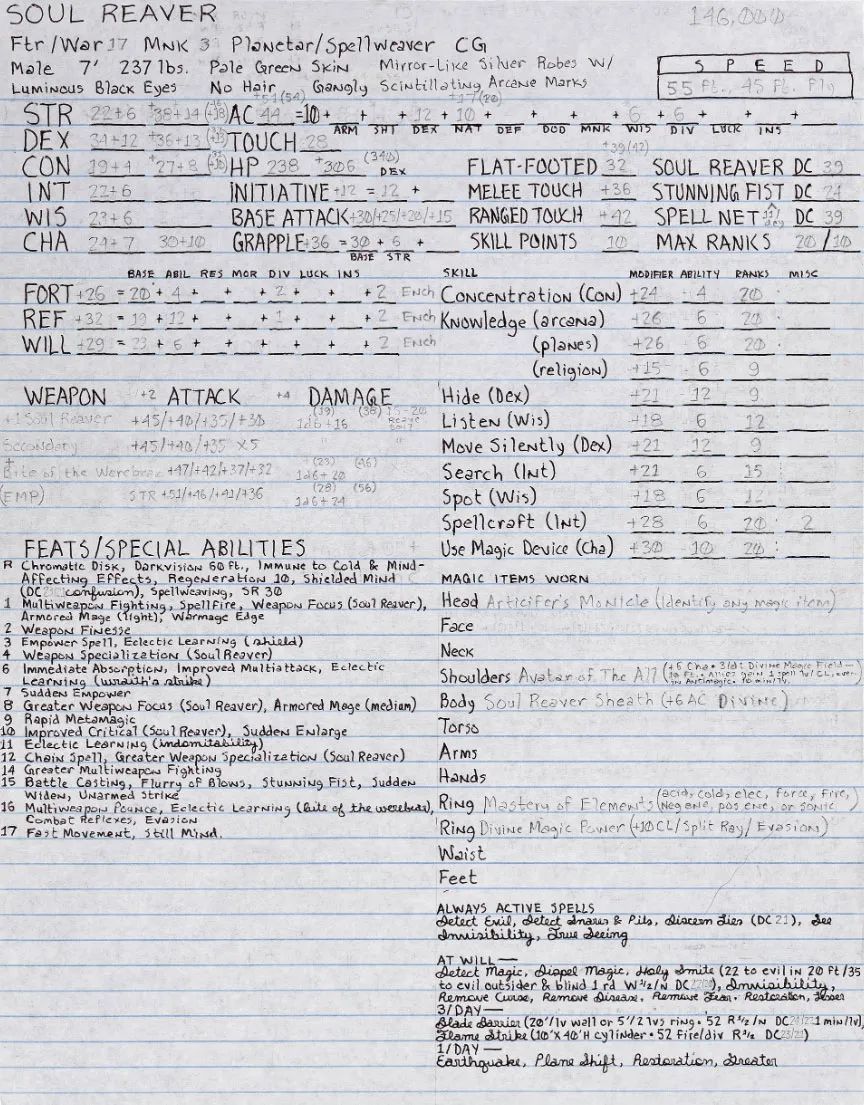 SOUL REAVER 146,000
Ftr/War 17 MNK 3 Planetar/Spellweaver CG
Male 7' 237 lbs. Pale Green Skin Mirror-Like Silver Robes W/
Luminous Black Eyes No Hair Gangly Scintillating Arcane Marks
SPEED
55 Ft., 45 Ft. Fly
STR 22+6 +38+14 AC 44 =10+ + + 12 + 10 + + + + 6 + 6 + + +
ARM SHT DEX NAT DEF DOD MNK WIS DIV LUCK INS
DEX 34+12 +36+13 TOUCH 28
CON 19+4 +27+8 HP 238 +306 (340) FLAT-FOOTED 32 SOUL REAVER DC 39
INT 22+6 INITIATIVE +12 = 12 + MELEE TOUCH +36 STUNNING FIST DC 24
DEX
+39(42)
WIS 23+6 BASE ATTACK +30/+25/+20/+15 RANGED TOUCH +42 SPELL NET DC 39
CHA 24+7 30+10 GRAPPLE +36 = 30 + 6 + SKILL POINTS 10 MAX RANKS 20/10
BASE STR
BASE ABIL RES MOR DIV LUCK INS
FORT +26 = 20 + 4 + + + 2 + + + 2 Ench
REF +32 = 19 + 12 + + + 1 + + + 2 Ench
WILL +29 = 23 + 6 + + + + + + 2 Ench
WEAPON +2 ATTACK +4 DAMAGE
+1 Soul Reaver +45/+40/+35/+30 (19) 1d6+16 (38) 15-20
Secondary +45/+40/+35 X5 " "
Bite of the Werebear +47/+42/+37/+32 (23) 1d6+20 (46)
(EMP) STR +51/+46/+41/+36 (28) 1d6+24 (56)
FEATS/SPECIAL ABILITIES
R Chromatic Disk, Darkvision 60 ft., Immune to Cold & Mind-
Affecting Effects, Regeneration 10, Shielded Mind
(DC confusion), Spellweaving, SR 30
1 Multiweapon Fighting, Spellfire, Weapon Focus (Soul Reaver),
Armored Mage (light), Warmage Edge
2 Weapon Finesse
3 Empower Spell, Eclectic Learning (shield)
4 Weapon Specialization (Soul Reaver)
6 Immediate Absorption, Improved Multiattack, Eclectic
Learning (wraith's strike)
7 Sudden Empower
8 Greater Weapon Focus (Soul Reaver), Armored Mage (medium)
9 Rapid Metamagic
10 Improved Critical (Soul Reaver), Sudden Enlarge
11 Eclectic Learning (indomitability)
12 Chain Spell, Greater Weapon Specialization (Soul Reaver)
14 Greater Multiweapon Fighting
15 Battle Casting, Flurry of Blows, Stunning Fist, Sudden
Widen, Unarmed Strike
16 Multiweapon Pounce, Eclectic Learning (bite of the werebear),
Combat Reflexes, Evasion
17 Fast Movement, Still Mind.
SKILL MODIFIER ABILITY RANKS MISC
Concentration (Con) +24 4 20
Knowledge (arcana) +26 6 20
(planes) +26 6 20
(religion) +15 6 9
Hide (Dex) +21 12 9
Listen (Wis) +18 6 12
Move Silently (Dex) +21 12 9
Search (Int) +21 6 15
Spot (Wis) +18 6 12
Spellcraft (Int) +28 6 20 2
Use Magic Device (Cha) +30 10 20
MAGIC ITEMS WORN
Head Artificer's Monicle (Identify any magic item)
Face
Neck
Shoulders Avatar of The All
Body Soul Reaver Sheath (+6 AC Divine)
Torso
Arms
Hands
Ring Mastery of Elements (acid, cold, elec, force, fire, Neg ene, pos ene, or sonic)
Ring Divine Magic Power (+10 CL/Split Ray/Evasion)
Waist
Feet
ALWAYS ACTIVE SPELLS
Detect Evil, Detect Snares & Pits, Discern Lies (DC 21), See
Invisibility, True Seeing
AT WILL—
Detect Magic, Dispel Magic, Holy Smite (22 to evil in 20 Ft/35
to evil outsider & blind 1 rd W ½/N DC), Invisibility,
Remove Curse, Remove Disease, Remove Fear. Restoration, Lesser
3/DAY—
Blade Barrier (20'/lv wall or 5'/2 lvs ring • 52 R ½/N DC 1 min/lv),
Flame Strike (10'X40'H cylinder • 52 Fire/div R ½ DC 23/21)
1/DAY—
Earthquake, Plane Shift, Restoration, Greater